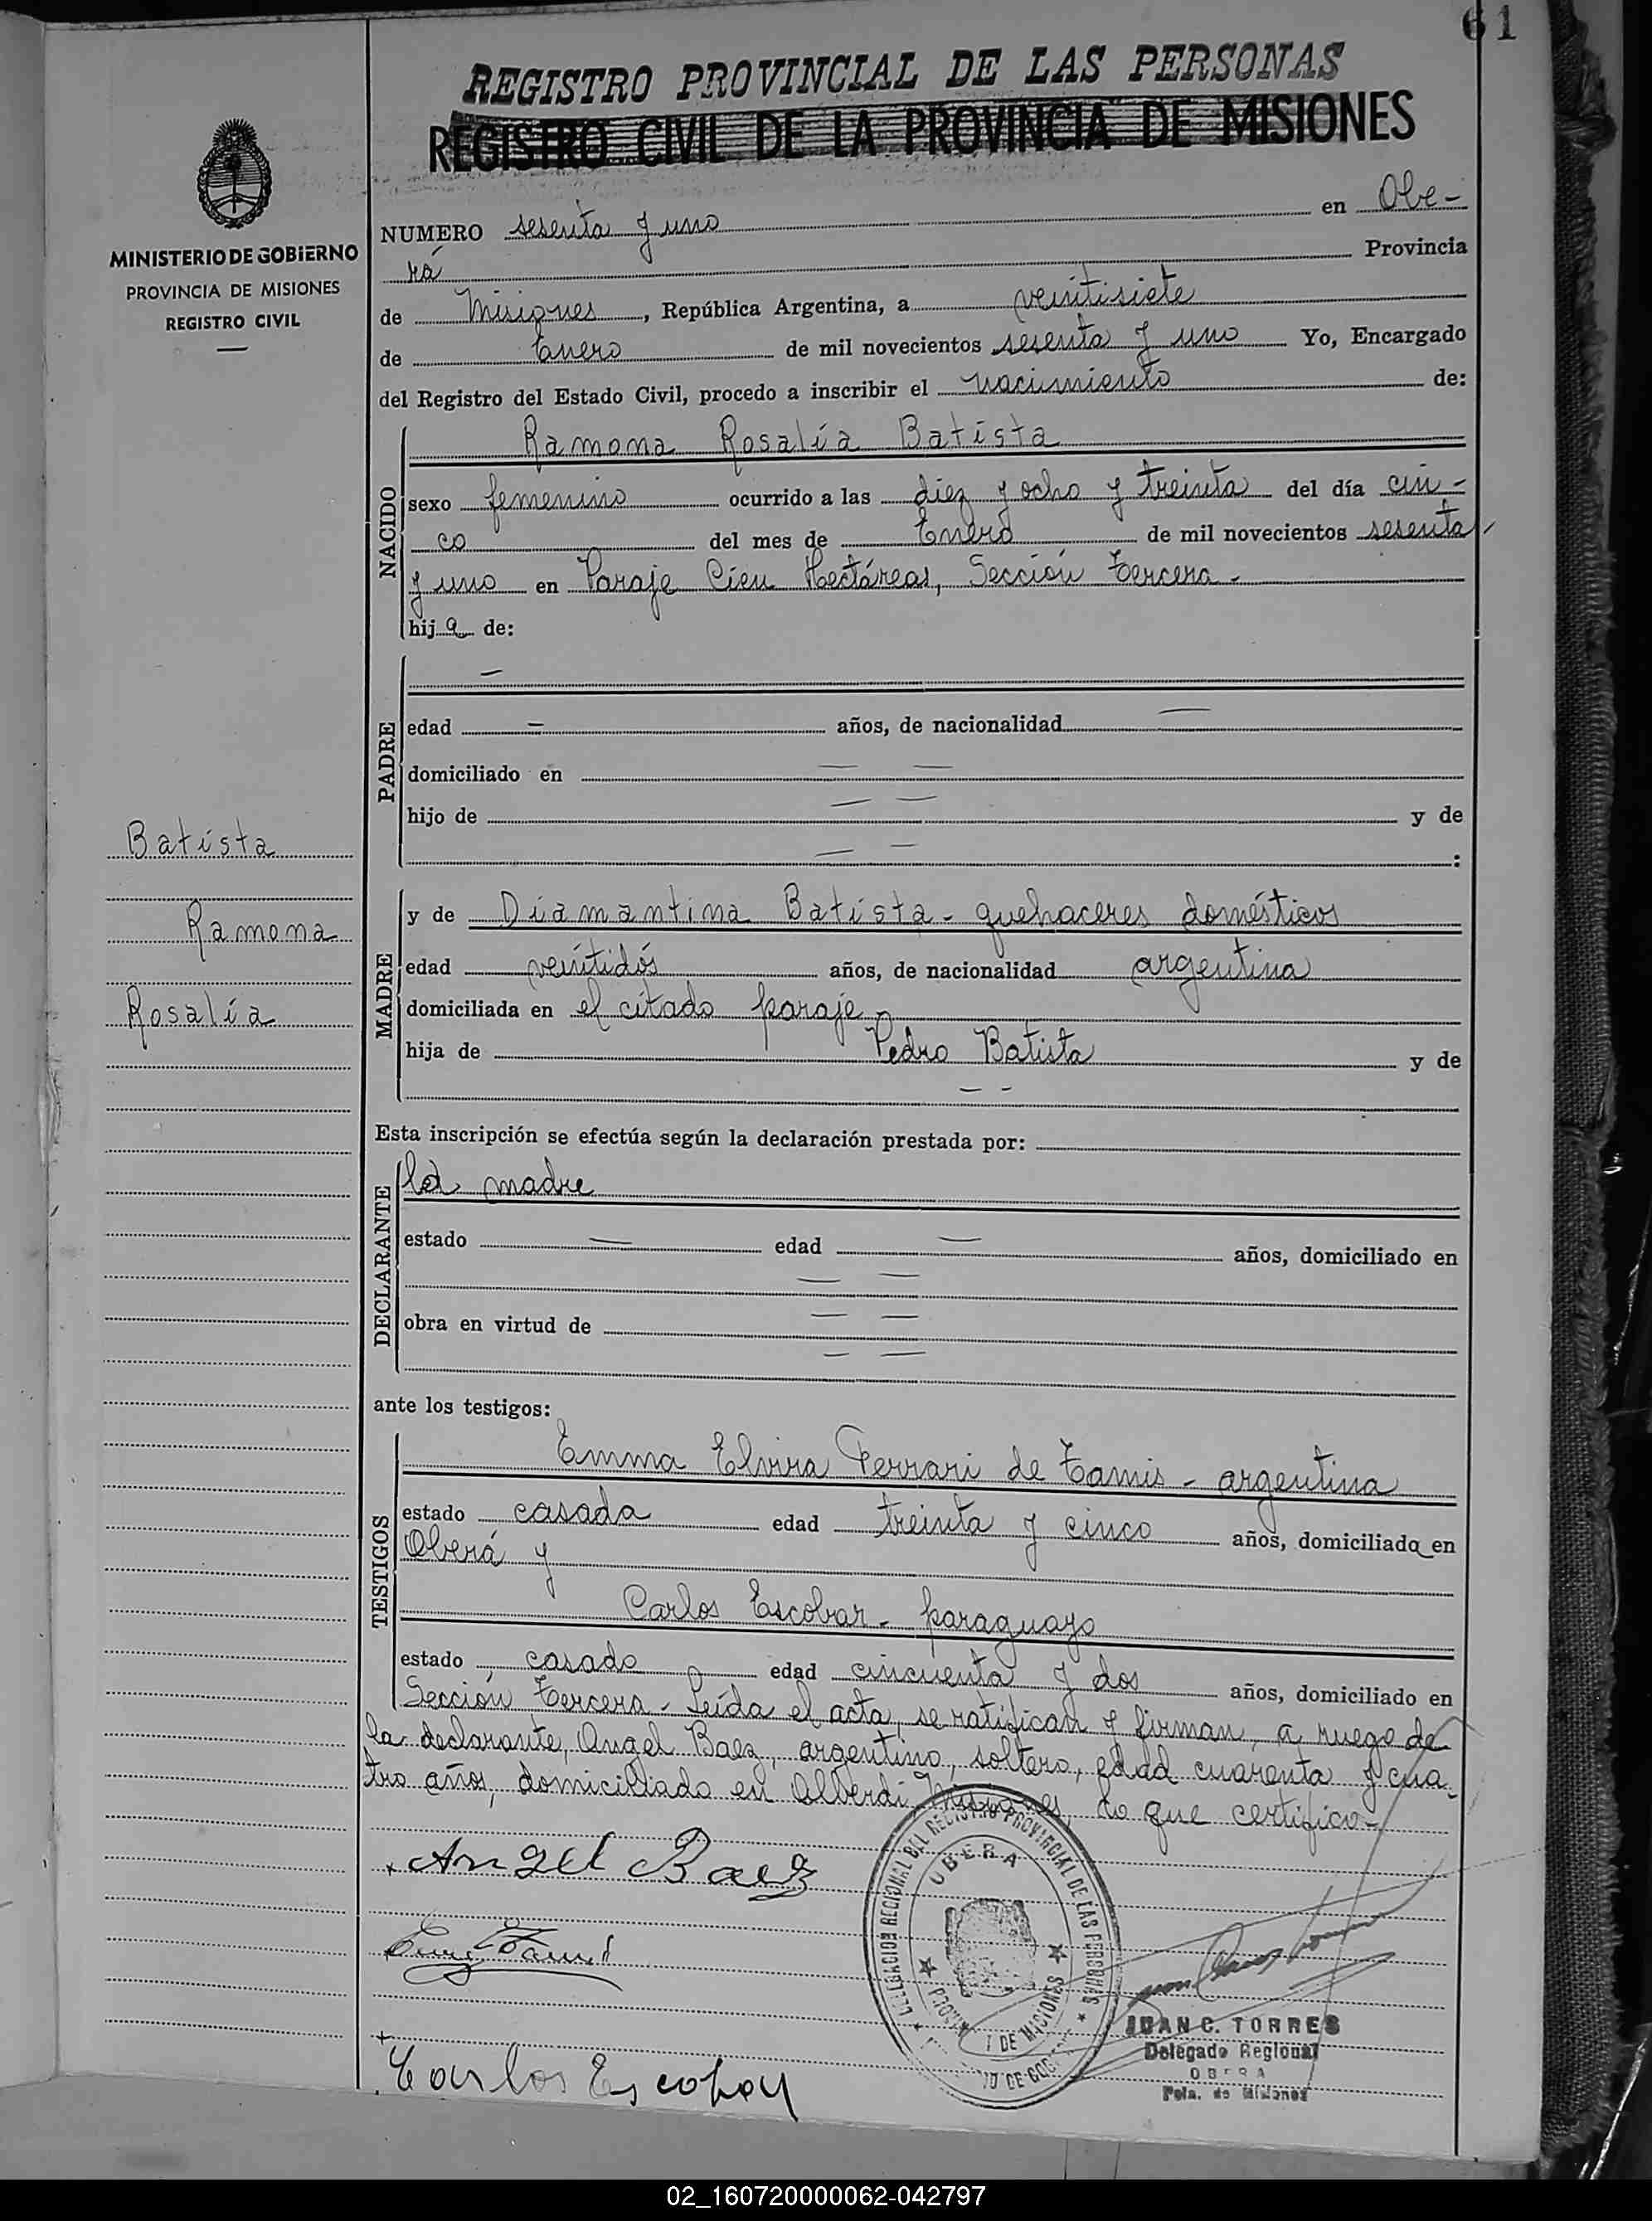 61
REGISTRO PROVINCIAL DE LAS PERSONAS
REGISTRO CIVIL DE LA PROVINCIA DE MISIONES
MINISTERIO DE GOBIERNO
PROVINCIA DE MISIONES
REGISTRO CIVIL
NUMERO sesenta y uno en Obe-
rá Provincia
de Misiones, República Argentina, a veintisiete
de Enero de mil novecientos sesenta y uno Yo, Encargado
del Registro del Estado Civil, procedo a inscribir el nacimiento de:
NACIDO
Ramona Rosalía Batista
sexo femenino ocurrido a las diez y ocho y treinta del día cin-
co del mes de Enero de mil novecientos sesenta
y uno en Paraje Cien Hectáreas, Sección Tercera.-
hija de:
PADRE
—
edad = años, de nacionalidad —
domiciliado en — —
hijo de — — y de
— — :
Batista
Ramona
Rosalía
MADRE
y de Diamantina Batista - quehaceres domésticos
edad veintidós años, de nacionalidad argentina
domiciliada en el citado paraje
hija de Pedro Batista y de
- -
Esta inscripción se efectúa según la declaración prestada por:
DECLARANTE
la madre
estado — edad — años, domiciliado en
— —
obra en virtud de — —
— —
ante los testigos:
TESTIGOS
Emma Elvira Ferrari de Tamis - argentina
estado casada edad treinta y cinco años, domiciliada en
Oberá y
Carlos Escobar - paraguayo
estado casado edad cincuenta y dos años, domiciliado en
Sección Tercera - Leída el acta, se ratifican y firman, a ruego de
la declarante, Angel Baez, argentino, soltero, edad cuarenta y cua-
tro años, domiciliado en Alberdi, Misiones, lo que certifico-
Angel Baez
Carlos Escobar
DELEGACION REGIONAL DEL REGISTRO PROVINCIAL DE LAS PERSONAS
OBERA
DE MISIONES
JUAN C. TORRES
Delegado Regional
OBERA
Pcia. de Misiones
02_160720000062-042797